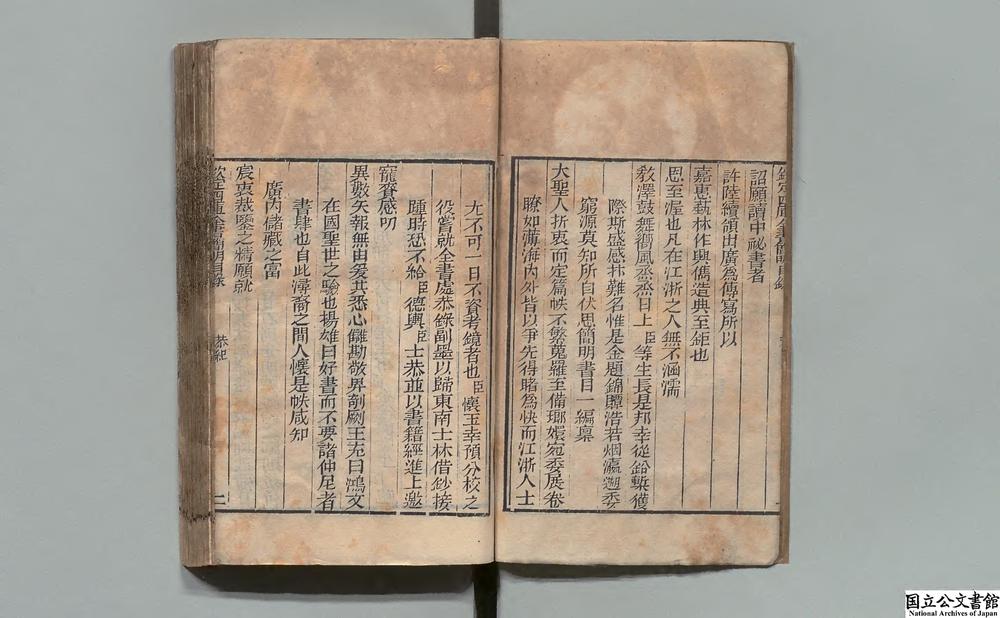 欽定四庫全書簡明目錄
詔願讀中祕書者
許陸續領出廣爲傳寫所以
嘉惠藝林作興儁造典至鉅也
恩至渥也凡在江浙之人無不涵濡
敎澤鼓舞嚮風烝烝日上臣等生長是邦幸從鉛槧獲
際斯盛感抃難名惟是金題錦贉浩若烟瀛遡委
窮源莫知所自伏思簡明書目一編稟
大聖人折衷而定篇帙不繁蒐羅至備瑯嬛宛委展卷
瞭如薄海內外皆以爭先得睹爲快而江浙人士
尤不可一日不資考鏡者也臣懷玉幸預分校之
役嘗就全書處恭錄副墨以歸東南士林借鈔接
踵時恐不給臣德輿臣士恭並以書籍經進上邀
寵賚感叨
異數矢報無由爰共悉心讎勘敬畀剞劂王充曰鴻文
在國聖世之驗也揚雄曰好書而不要諸仲尼者
書肆也自此潯裔之間人懷是帙咸知
廣內儲藏之富
宸衷裁鑒之精願就
欽定四庫全書簡明目錄
恭紀
二
国立公文書館
National Archives of Japan